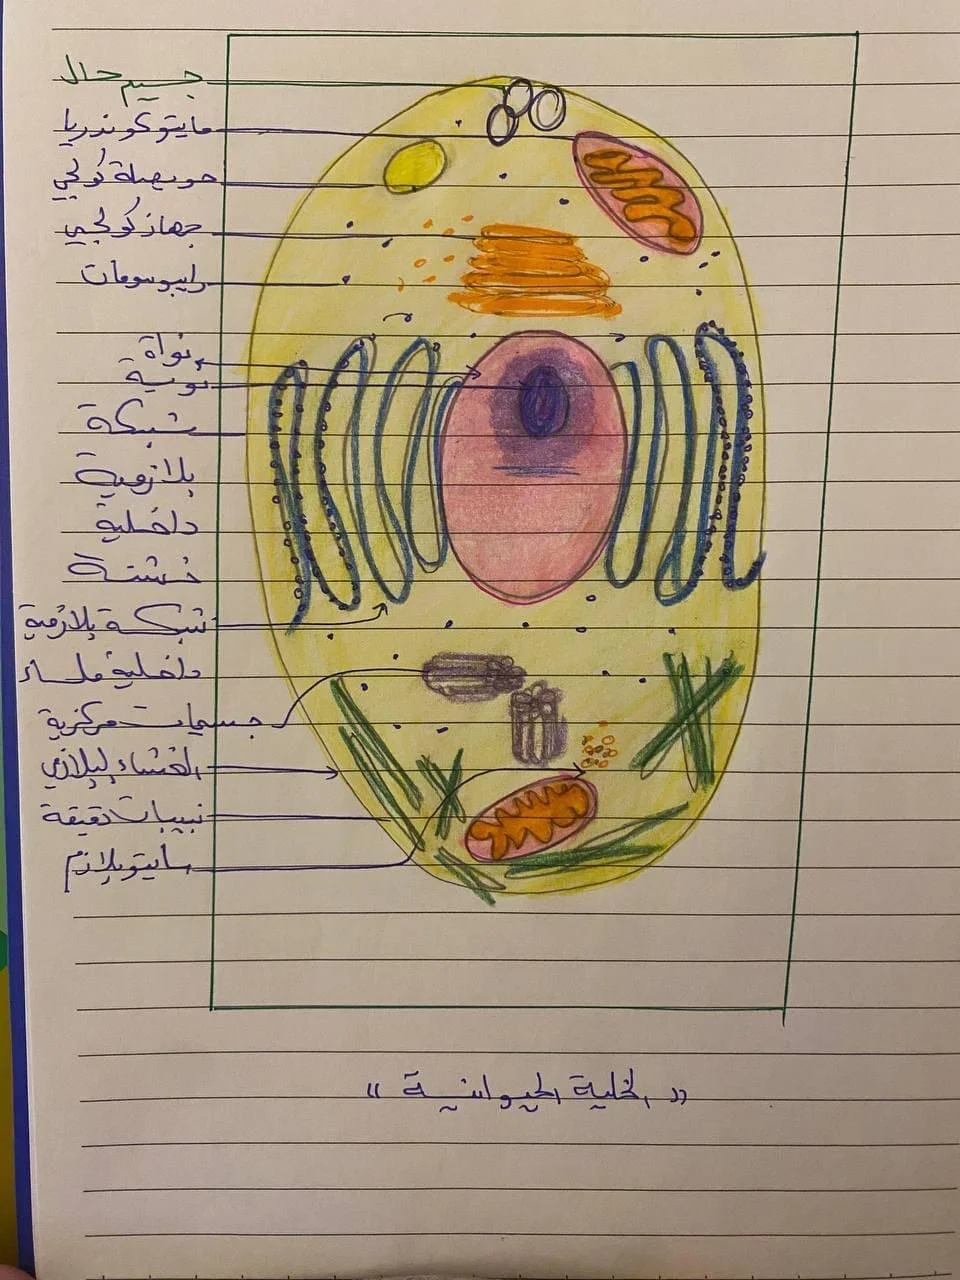 جسيم حال
مايتوكوندريا
حويصلة كولجي
جهاز كولجي
رايبوسومات
نواة
نوية
شبكة
بلازمية
داخلية
خشنة
شبكة بلازمية
داخلية ملساء
جسيمات مركزية
الغشاء البلازمي
نبيبات دقيقة
سايتوبلازم
" الخلية الحيوانية "